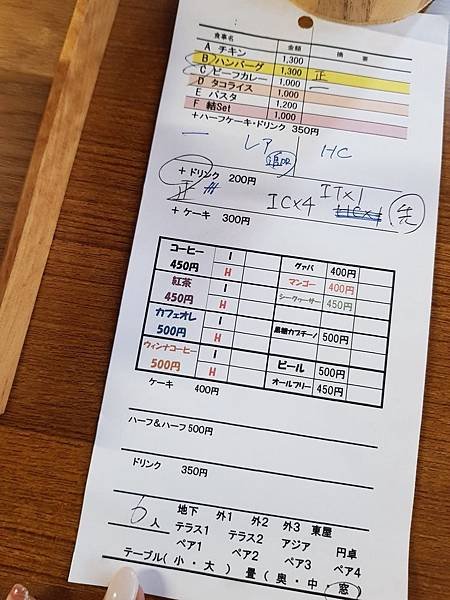 食事名 金額 摘要
A チキン 1,300
B ハンバーグ 1,300 正
C ビーフカレー 1,000 一
D タコライス 1,000
E パスタ 1,200
F 結Set 1,000
+ハーフケーキ・ドリンク 350円
一 レア HC
+ドリンク 200円
正 ICx4 ITx1 HCx1 先
+ケーキ 300円
コーヒー 450円 I H グァバ 400円
マンゴー 400円
紅茶 450円 I H シークヮーサー 450円
カフェオレ 500円 I H 黒糖カプチーノ 500円
ウィンナコーヒー 500円 I H ビール 500円
オールフリー 450円
ケーキ 400円
ハーフ&ハーフ 500円
ドリンク 350円
6人 地下 外1 外2 外3 東屋
テラス1 テラス2 アジア 円卓
ペア1 ペア2 ペア3 ペア4
テーブル(小・大) 畳(奥・中・窓)